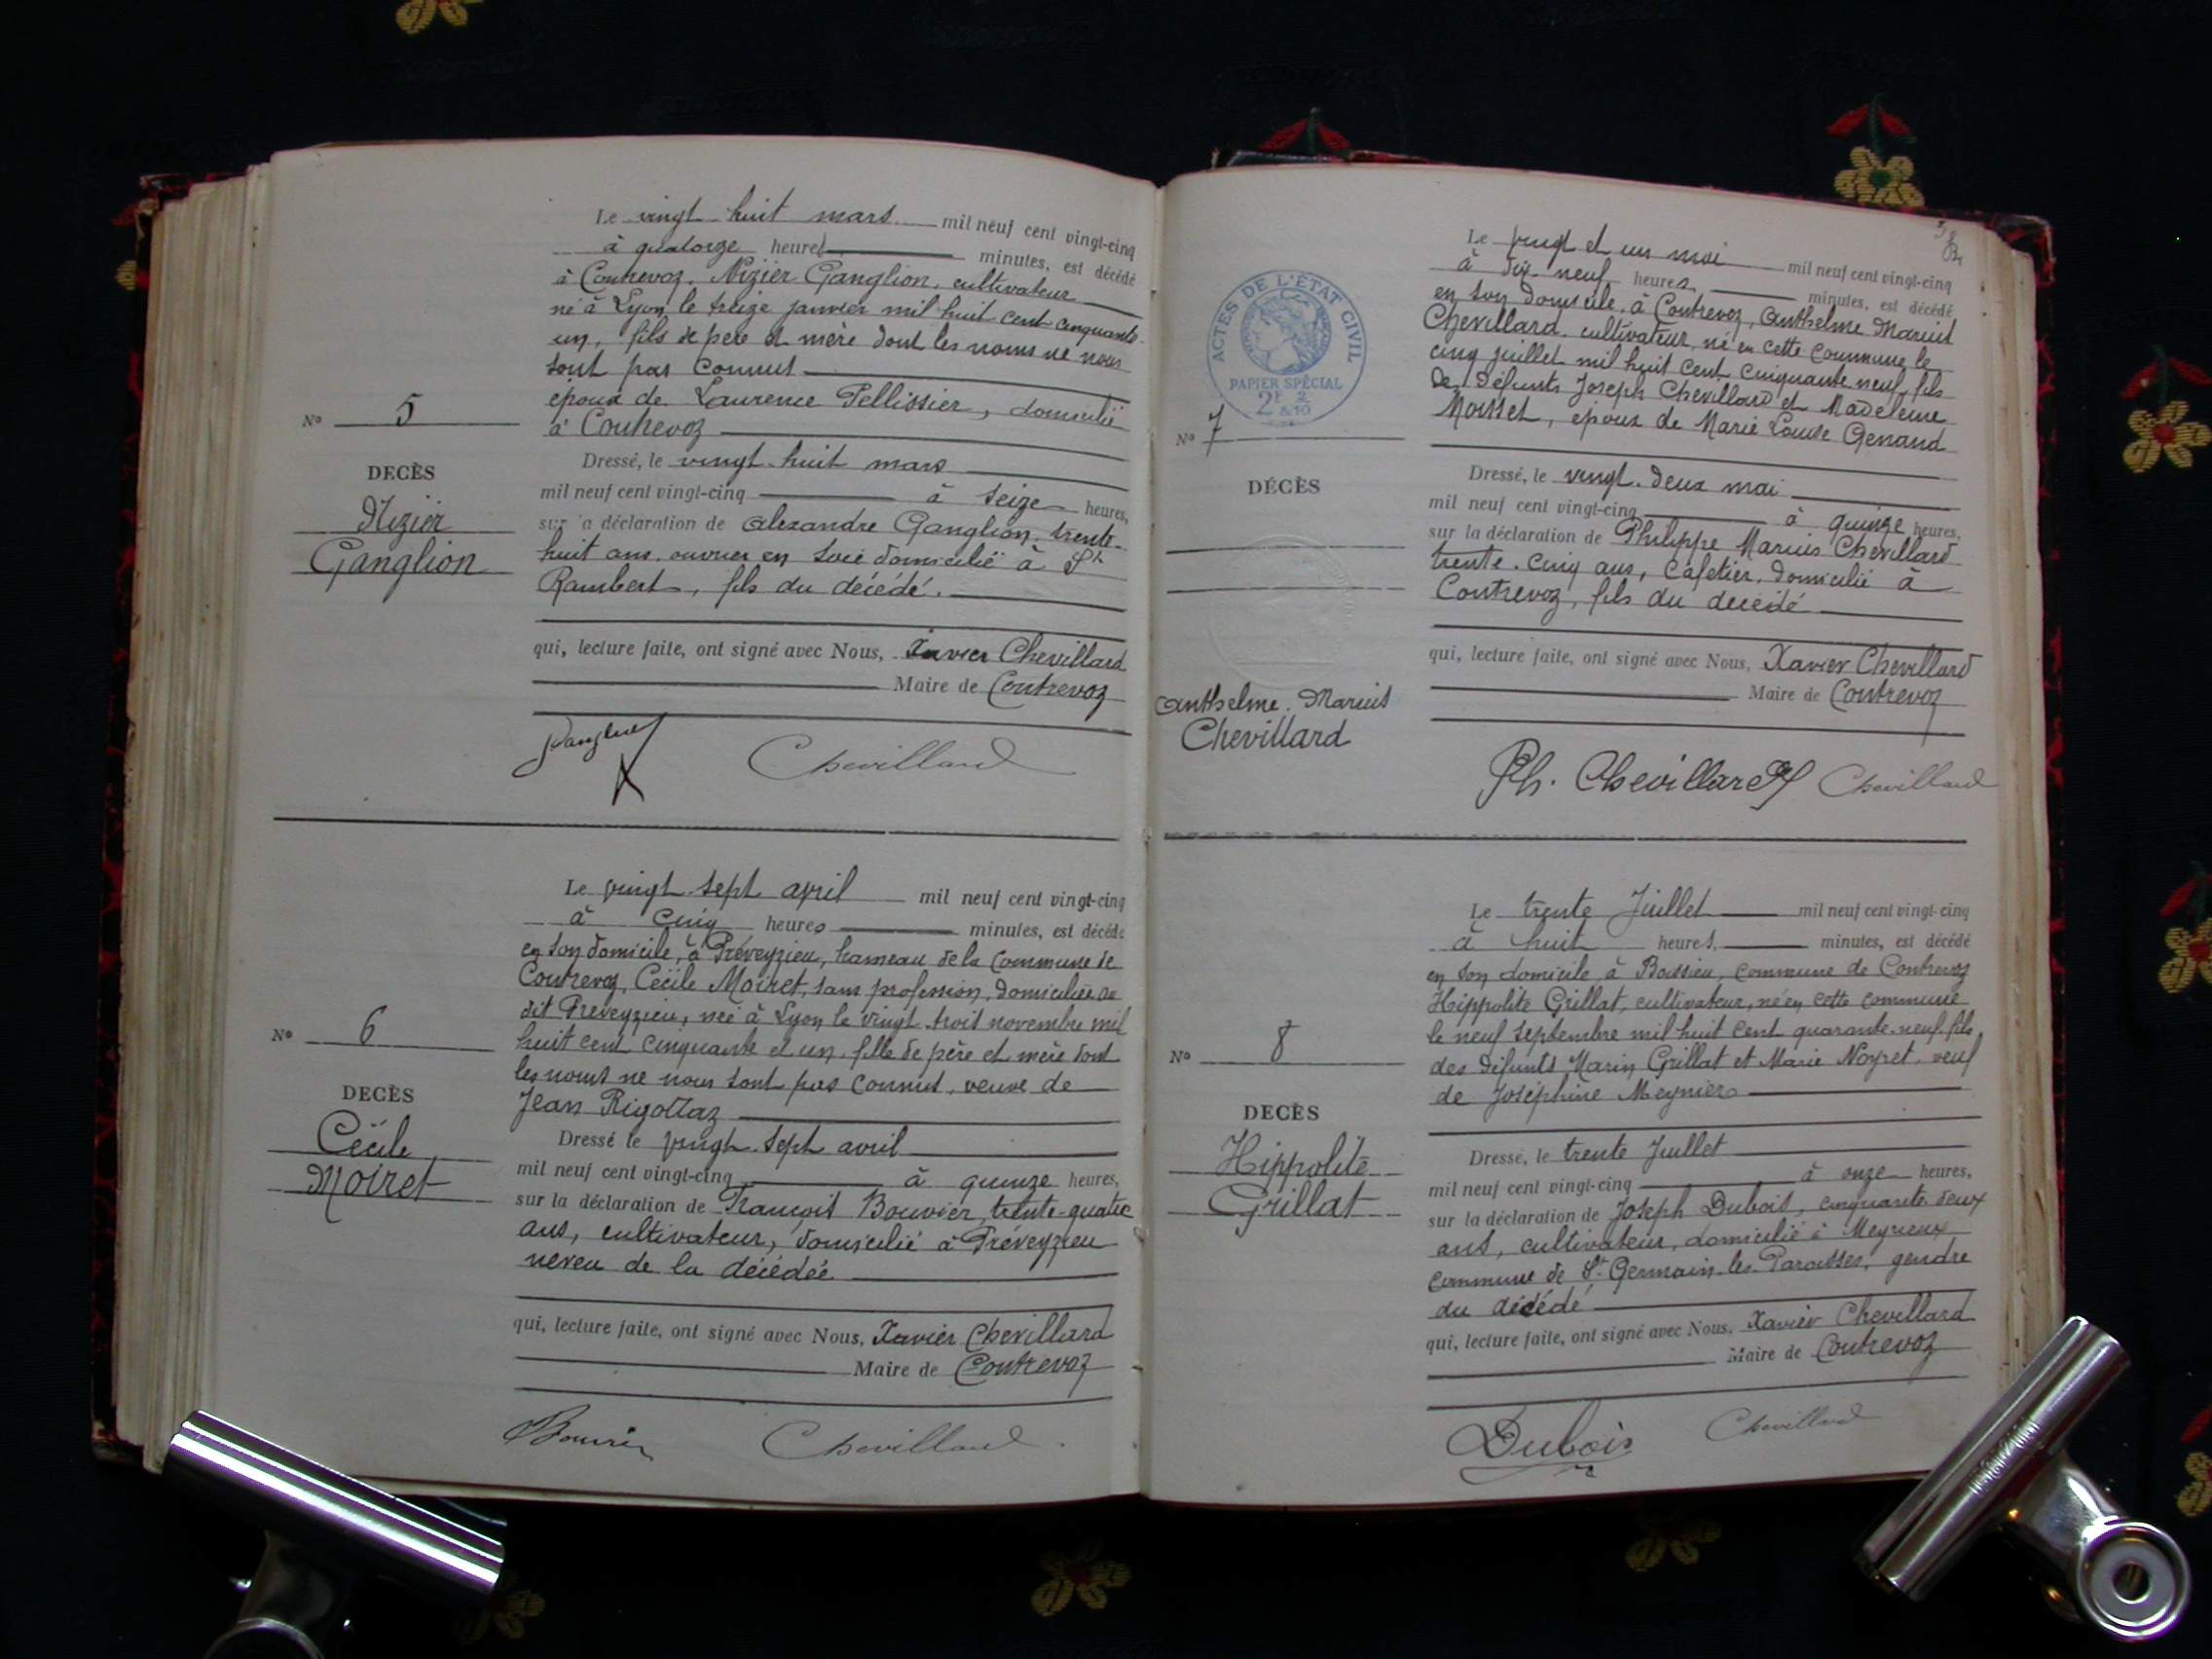 Le vingt huit mars mil neuf cent vingt-cinq
à quatorze heures minutes, est décédé
à Contrevoz, Nizier Ganglion, cultivateur
né à Lyon le seize janvier mil huit cent cinquante
un, fils de père et mère dont les noms ne nous
sont pas connus
époux de Laurence Pellissier, domicilié
à Contrevoz
No 5
DECÈS
Nizier
Ganglion
Dressé, le vingt huit mars
mil neuf cent vingt-cinq à seize heures,
sur la déclaration de Alexandre Ganglion, trente-
huit ans, ouvrier en soie domicilié à St
Rambert, fils du décédé.
qui, lecture faite, ont signé avec Nous, Xavier Chevillard
Maire de Contrevoz
Chevillard
Le vingt sept avril mil neuf cent vingt-cinq
à cinq heures minutes, est décédé
en son domicile, à Préveyzieu, hameau de la commune de
Contrevoz, Cécile Moiret, sans profession, domiciliée au
dit Préveyzieu, née à Lyon le vingt trois novembre mil
huit cent cinquante et un, fille de père et mère dont
les noms ne nous sont pas connus, veuve de
Jean Rigollaz
No 6
DECÈS
Cécile
Moiret
Dressé le vingt sept avril
mil neuf cent vingt-cinq à quinze heures,
sur la déclaration de François Bouvier, trente-quatre
ans, cultivateur, domicilié à Préveyzieu
neveu de la décédée
qui, lecture faite, ont signé avec Nous, Xavier Chevillard
Maire de Contrevoz
Bouvier Chevillard
Le vingt et un mai mil neuf cent vingt-cinq
à dix neuf heures minutes, est décédé
en son domicile, à Contrevoz, Anthelme Marius
Chevillard, cultivateur, né en cette commune le
cinq juillet mil huit cent cinquante neuf, fils
de défunts Joseph Chevillard et Madeleine
Moisset, époux de Marie Louise Genand
ACTES DE L'ÉTAT CIVIL
PAPIER SPÉCIAL
No 7
DÉCÈS
Anthelme Marius
Chevillard
Dressé, le vingt deux mai
mil neuf cent vingt-cinq à quinze heures,
sur la déclaration de Philippe Marius Chevillard
trente cinq ans, cafetier, domicilié à
Contrevoz, fils du décédé
qui, lecture faite, ont signé avec Nous, Xavier Chevillard
Maire de Contrevoz
Ph. Chevillard Chevillard
Le trente Juillet mil neuf cent vingt-cinq
à huit heures minutes, est décédé
en son domicile à Boissieu, commune de Contrevoz
Hippolite Grillat, cultivateur, né en cette commune
le neuf septembre mil huit cent quarante neuf, fils
des défunts Marin Grillat et Marie Noyret, veuf
de Joséphine Meynier
No 8
DECÈS
Hippolite
Grillat
Dressé, le trente Juillet
mil neuf cent vingt-cinq à onze heures,
sur la déclaration de Joseph Dubois, cinquante deux
ans, cultivateur, domicilié à Meyrieux
commune de St Germain les Paroisses, gendre
du décédé
qui, lecture faite, ont signé avec Nous, Xavier Chevillard
Maire de Contrevoz
Dubois Chevillard